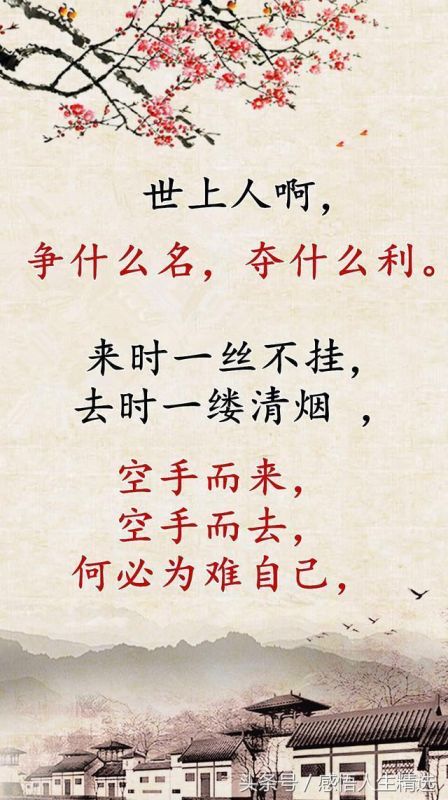 世上人啊，
争什么名，夺什么利。
来时一丝不挂，
去时一缕清烟 ，
空手而来，
空手而去，
何必为难自己，
头条号 / 感悟人生精选